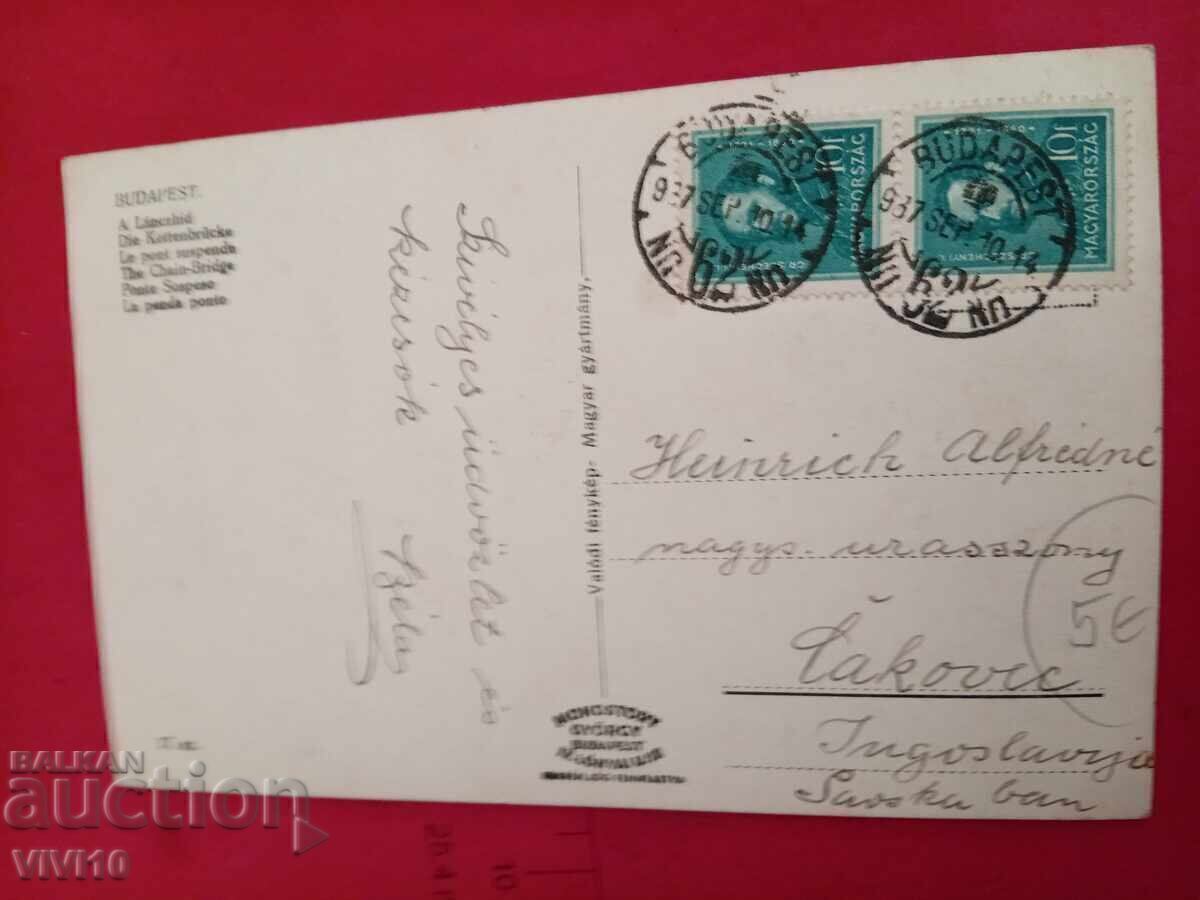 BUDAPEST.
A Lánchid
Die Kettenbrücke
Le pont suspendu
The Chain-Bridge
Ponte Sospeso
La penda ponto
Szivélyes üdvözlet és
kézcsók
Béla
Valódi fénykép- Magyar gyártmány.
BUDAPEST
937 SEP. 10. 14
62
BUDAPEST
937 SEP. 10. 14
62
10f
MAGYARORSZÁG
GR. SZÉCHENYI I.
10f
MAGYARORSZÁG
SZÉCHENYI I.
Heinrich Alfrédné
nagys. urasszony
Čakovec
Jugoslavija
Savska ban
5€
MONOSTORY
GYÖRGY
BUDAPEST
BALKAN
auction
VIVI10
10